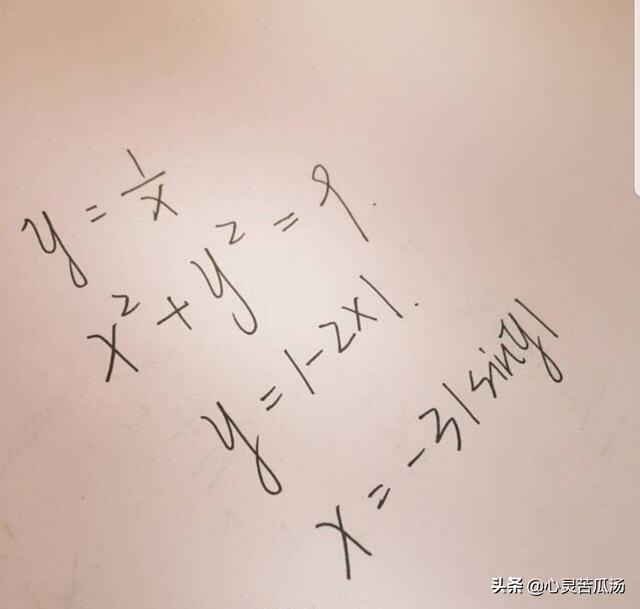 y = 1/x
x² + y² = 9.
y = |-2x|.
x = -3|sin y|
头条 @心灵苦瓜汤